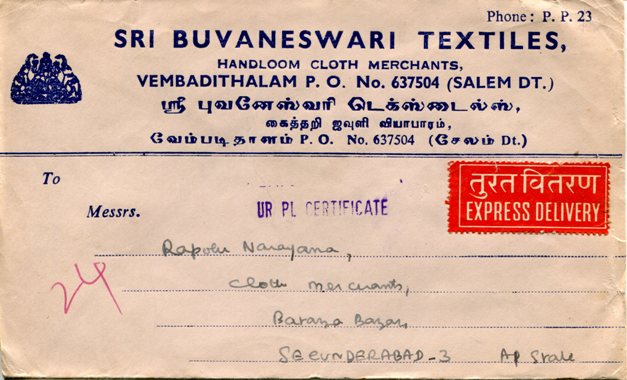 Phone: P. P. 23
SRI BUVANESWARI TEXTILES,
HANDLOOM CLOTH MERCHANTS,
VEMBADITHALAM P. O. No. 637504 (SALEM DT.)
ஸ்ரீ புவனேஸ்வரி டெக்ஸ்டைல்ஸ்,
கைத்தறி ஜவுளி வியாபாரம்,
வேம்படிதாளம் P. O. No. 637504 (சேலம் Dt.)
To
तुरत वितरण
EXPRESS DELIVERY
Messrs.
UR PL CERTIFICATE
Rapolu Narayana,
Cloth merchants,
Bazar,
SECUNDERABAD-3 AP State
24